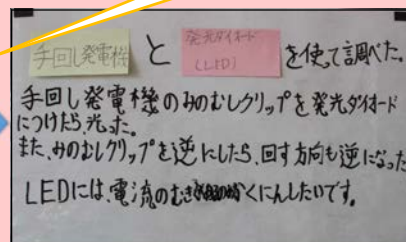 手回し発電機 と 発光ダイオード (LED) を使って調べた。
手回し発電機のみのむしクリップを発光ダイオード
につけたら、光った。
また、みのむしクリップを逆にしたら、回す方向も逆になった
LEDには、電流のむき くにんしたいです。